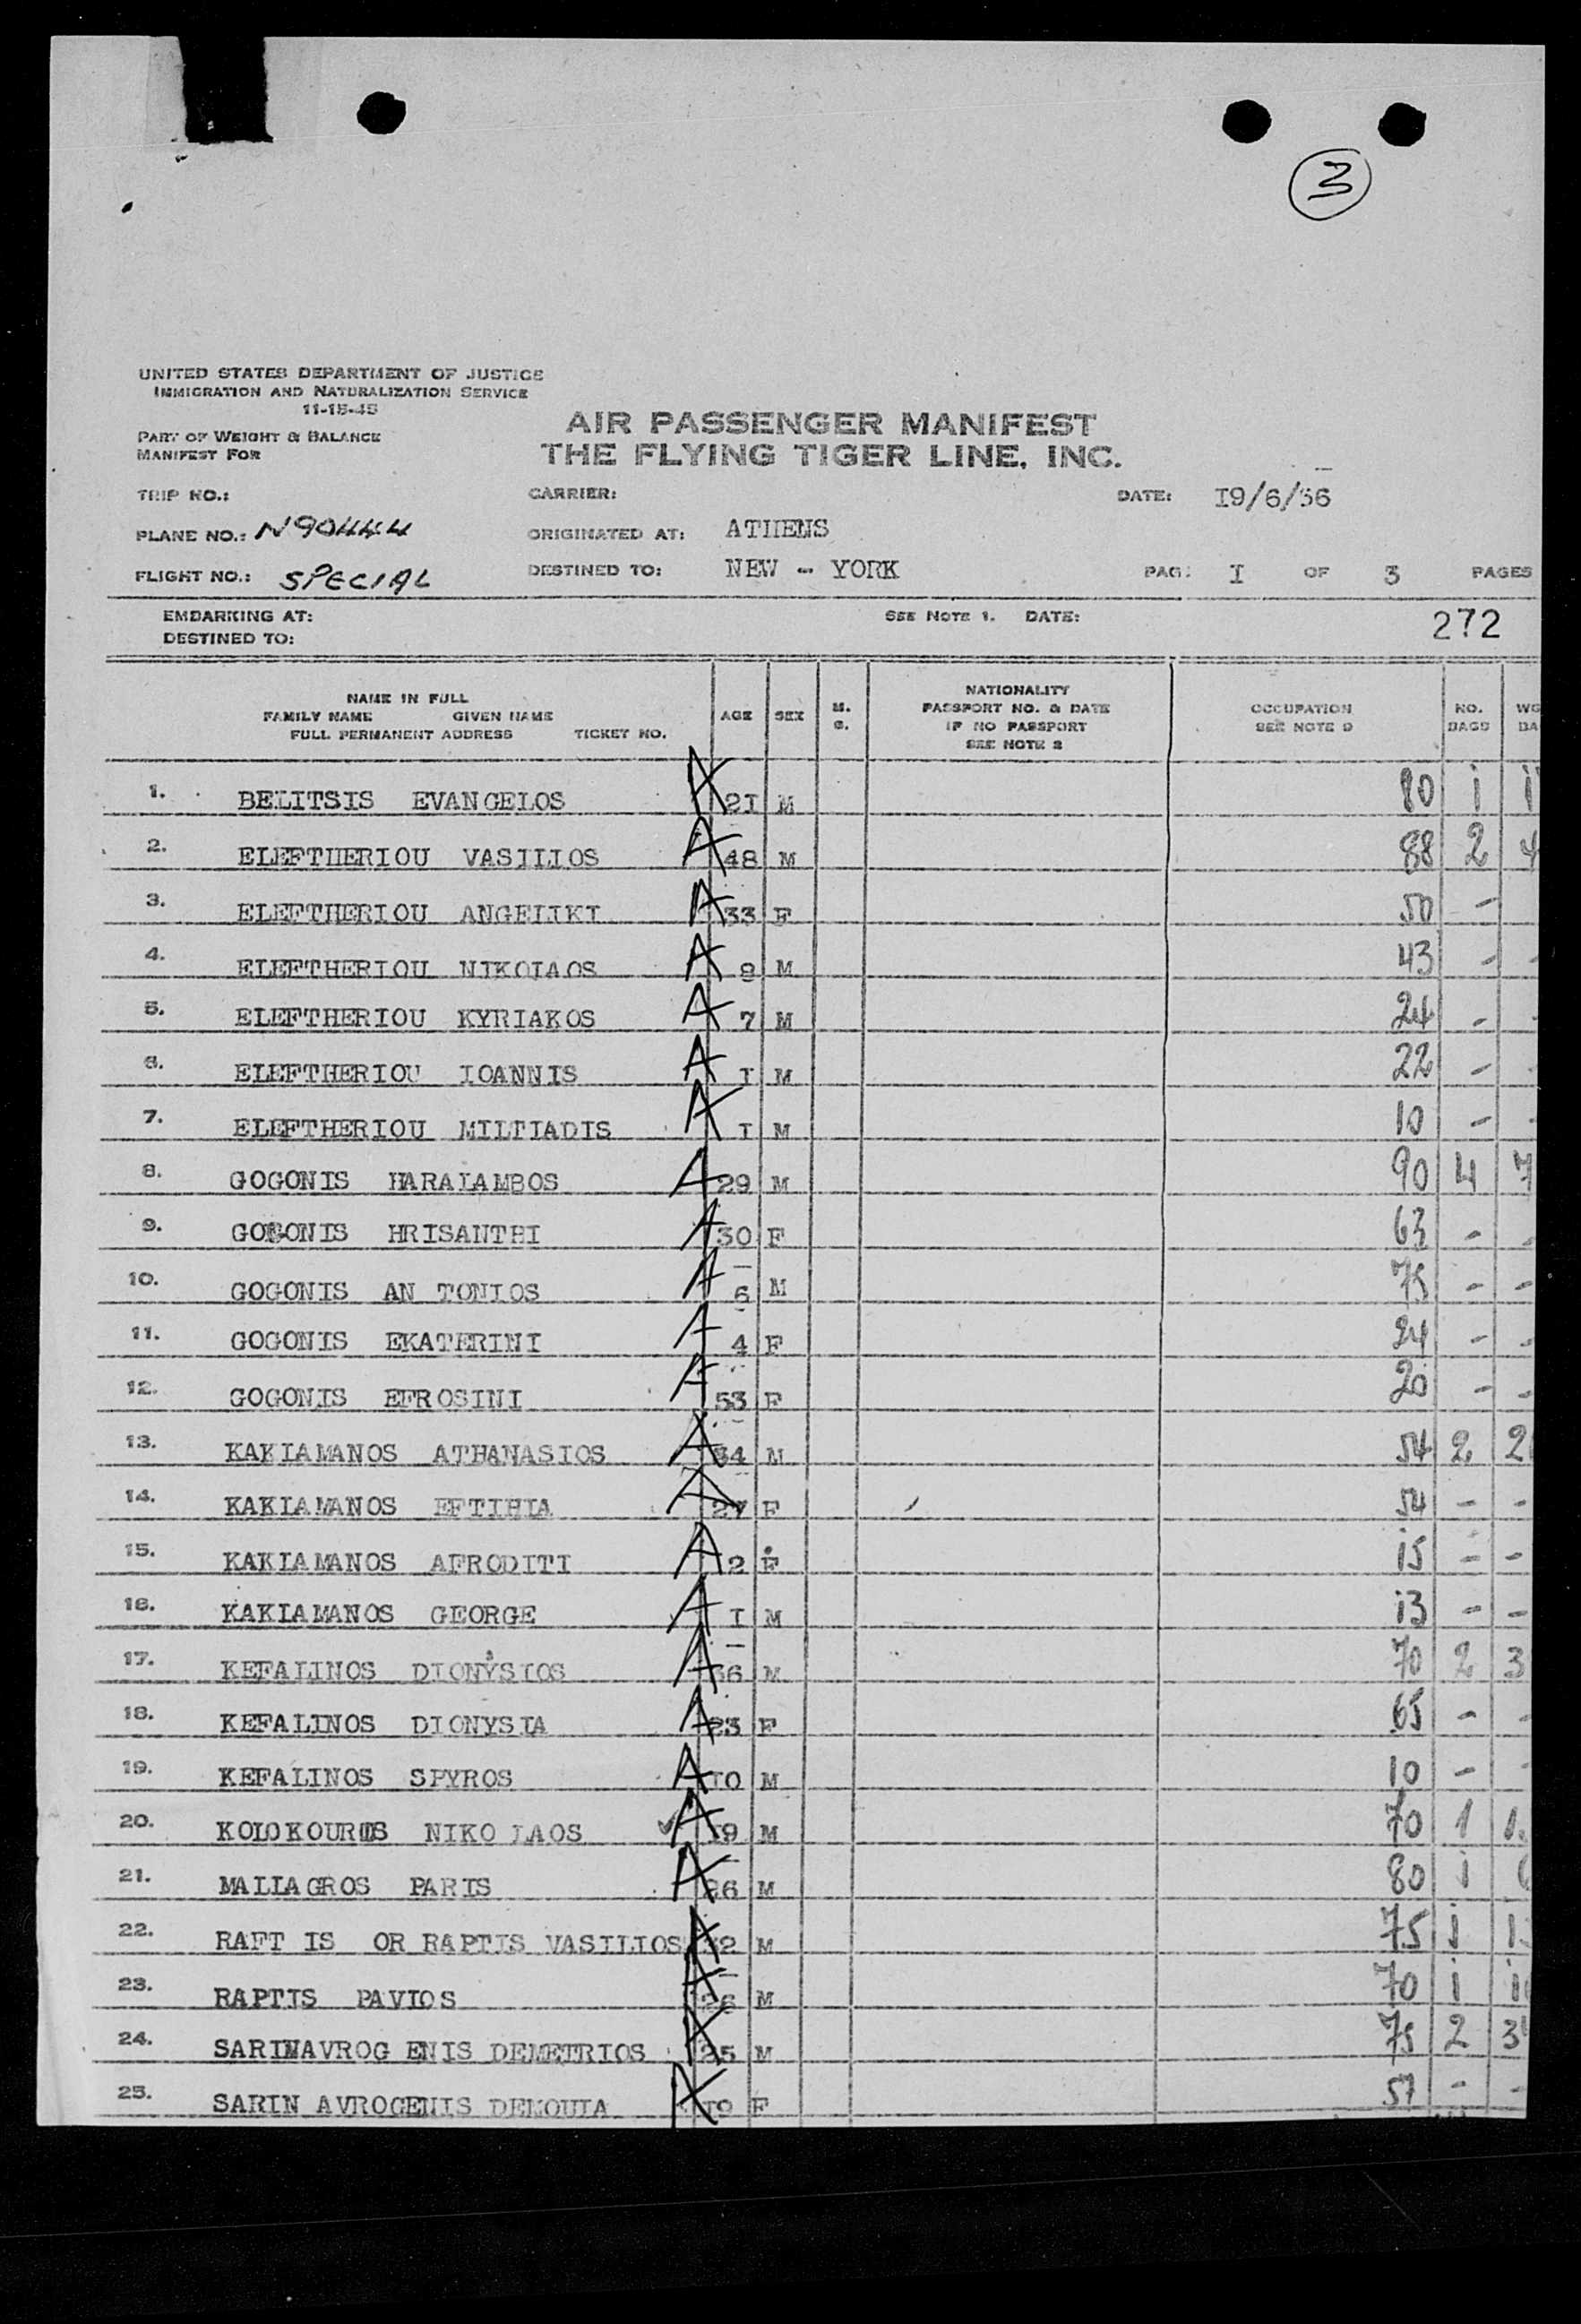 3
UNITED STATES DEPARTMENT OF JUSTICE
IMMIGRATION AND NATURALIZATION SERVICE
11-15-45
PART OF WEIGHT & BALANCE
MANIFEST FOR
AIR PASSENGER MANIFEST
THE FLYING TIGER LINE, INC.
TRIP NO.: CARRIER: DATE: I9/6/56
PLANE NO.: N90444 ORIGINATED AT: ATHENS
FLIGHT NO.: SPECIAL DESTINED TO: NEW - YORK PAG: I OF 3 PAGES
EMBARKING AT: SEE NOTE 1. DATE: 272
DESTINED TO:
NAME IN FULL
FAMILY NAME GIVEN NAME
FULL PERMANENT ADDRESS TICKET NO.
AGE SEX M. S.
NATIONALITY
PASSPORT NO. & DATE
IF NO PASSPORT
SEE NOTE 2
OCCUPATION
SEE NOTE 9
NO. BAGS
WG BA
1. BELITSIS EVANGELOS A 2I M 80 i i
2. ELEFTHERIOU VASILIOS A 48 M 88 2 4
3. ELEFTHERIOU ANGELIKI A 33 F 50 -
4. ELEFTHERIOU NIKOLAOS A 9 M 43 - -
5. ELEFTHERIOU KYRIAKOS A 7 M 24 - -
6. ELEFTHERIOU IOANNIS A I M 22 - -
7. ELEFTHERIOU MILTIADIS A I M 10 - -
8. GOGONIS HARALAMBOS A 29 M 90 4 7
9. GOGONIS HRISANTHI A 30 F 63 - -
10. GOGONIS AN TONIOS A 6 M 75 - -
11. GOGONIS EKATERINI A 4 F 24 - -
12. GOGONIS EFROSINI A 53 F 20 - -
13. KAKLAMANOS ATHANASIOS A 34 M 54 2 2
14. KAKLAMANOS EFTIHIA A 27 F 54 - -
15. KAKLAMANOS AFRODITI A 2 F 15 - -
16. KAKLAMANOS GEORGE A I M 13 - -
17. KEFALINOS DIONYSIOS A 36 M 70 2 3
18. KEFALINOS DIONYSIA A 23 F 65 - -
19. KEFALINOS SPYROS A IO M 10 - -
20. KOLOKOURIS NIKO LAOS A I9 M 70 1 1.
21. MALLAGROS PARIS A 26 M 80 i
22. RAFT IS OR RAPTIS VASILIOS A 2 M 75 i 1
23. RAPTIS PAVLOS A 26 M 70 i i
24. SARIMAVROG ENIS DEMETRIOS A 25 M 75 2 3
25. SARIN AVROGENIS A I9 F 57 - -